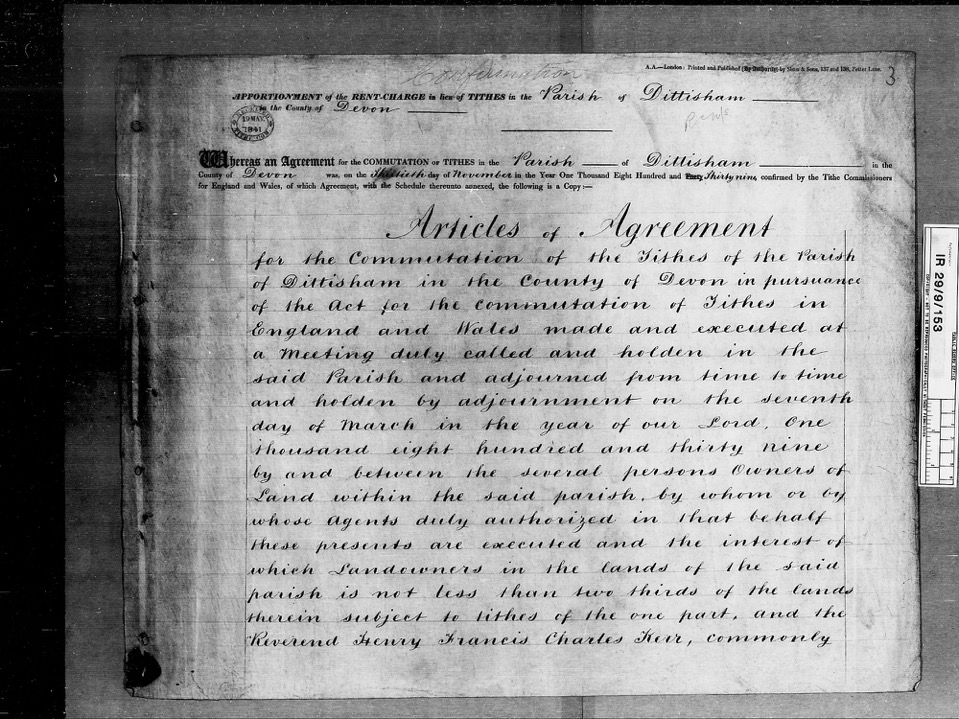 A.A.—London: Printed and Published (By Authority) by Shaw & Sons, 137 and 138, Fetter Lane.
3
APPORTIONMENT of the RENT-CHARGE in lieu of TITHES in the Parish of Dittisham
in the County of Devon
19 MAY.
1841
Whereas an Agreement for the COMMUTATION OF TITHES in the Parish of Dittisham in the
County of Devon was, on the Thirtieth day of November in the Year One Thousand Eight Hundred and Forty Thirty nine, confirmed by the Tithe Commissioners
for England and Wales, of which Agreement, with the Schedule thereunto annexed, the following is a Copy:—
Articles of Agreement
for the Commutation of the Tithes of the Parish
of Dittisham in the County of Devon in pursuance
of the Act for the commutation of Tithes in
England and Wales made and executed at
a Meeting duly called and holden in the
said Parish and adjourned from time to time
and holden by adjournment on the seventh
day of March in the year of our Lord, One
thousand eight hundred and thirty nine
by and between the several persons Owners of
Land within the said parish, by whom or by
whose Agents duly authorized in that behalf
these presents are executed and the interest of
which Landowners in the lands of the said
parish is not less than two thirds of the lands
therein subject to tithes of the one part, and the
Reverend Henry Francis Charles Kerr, commonly
IR 29/9/153